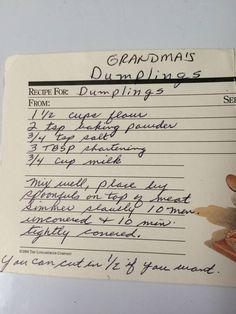 GRANDMA'S
Dumplings
RECIPE FOR: Dumplings
FROM: SE
1 1/2 cups flour
2 tsp baking powder
3/4 tsp salt
3 TBSP shortening
3/4 cup milk
Mix well, place by
spoonfuls on top of meat
Simmer slowly 10 min
uncovered & 10 min.
tightly covered.
You can cut in 1/2 if you want.